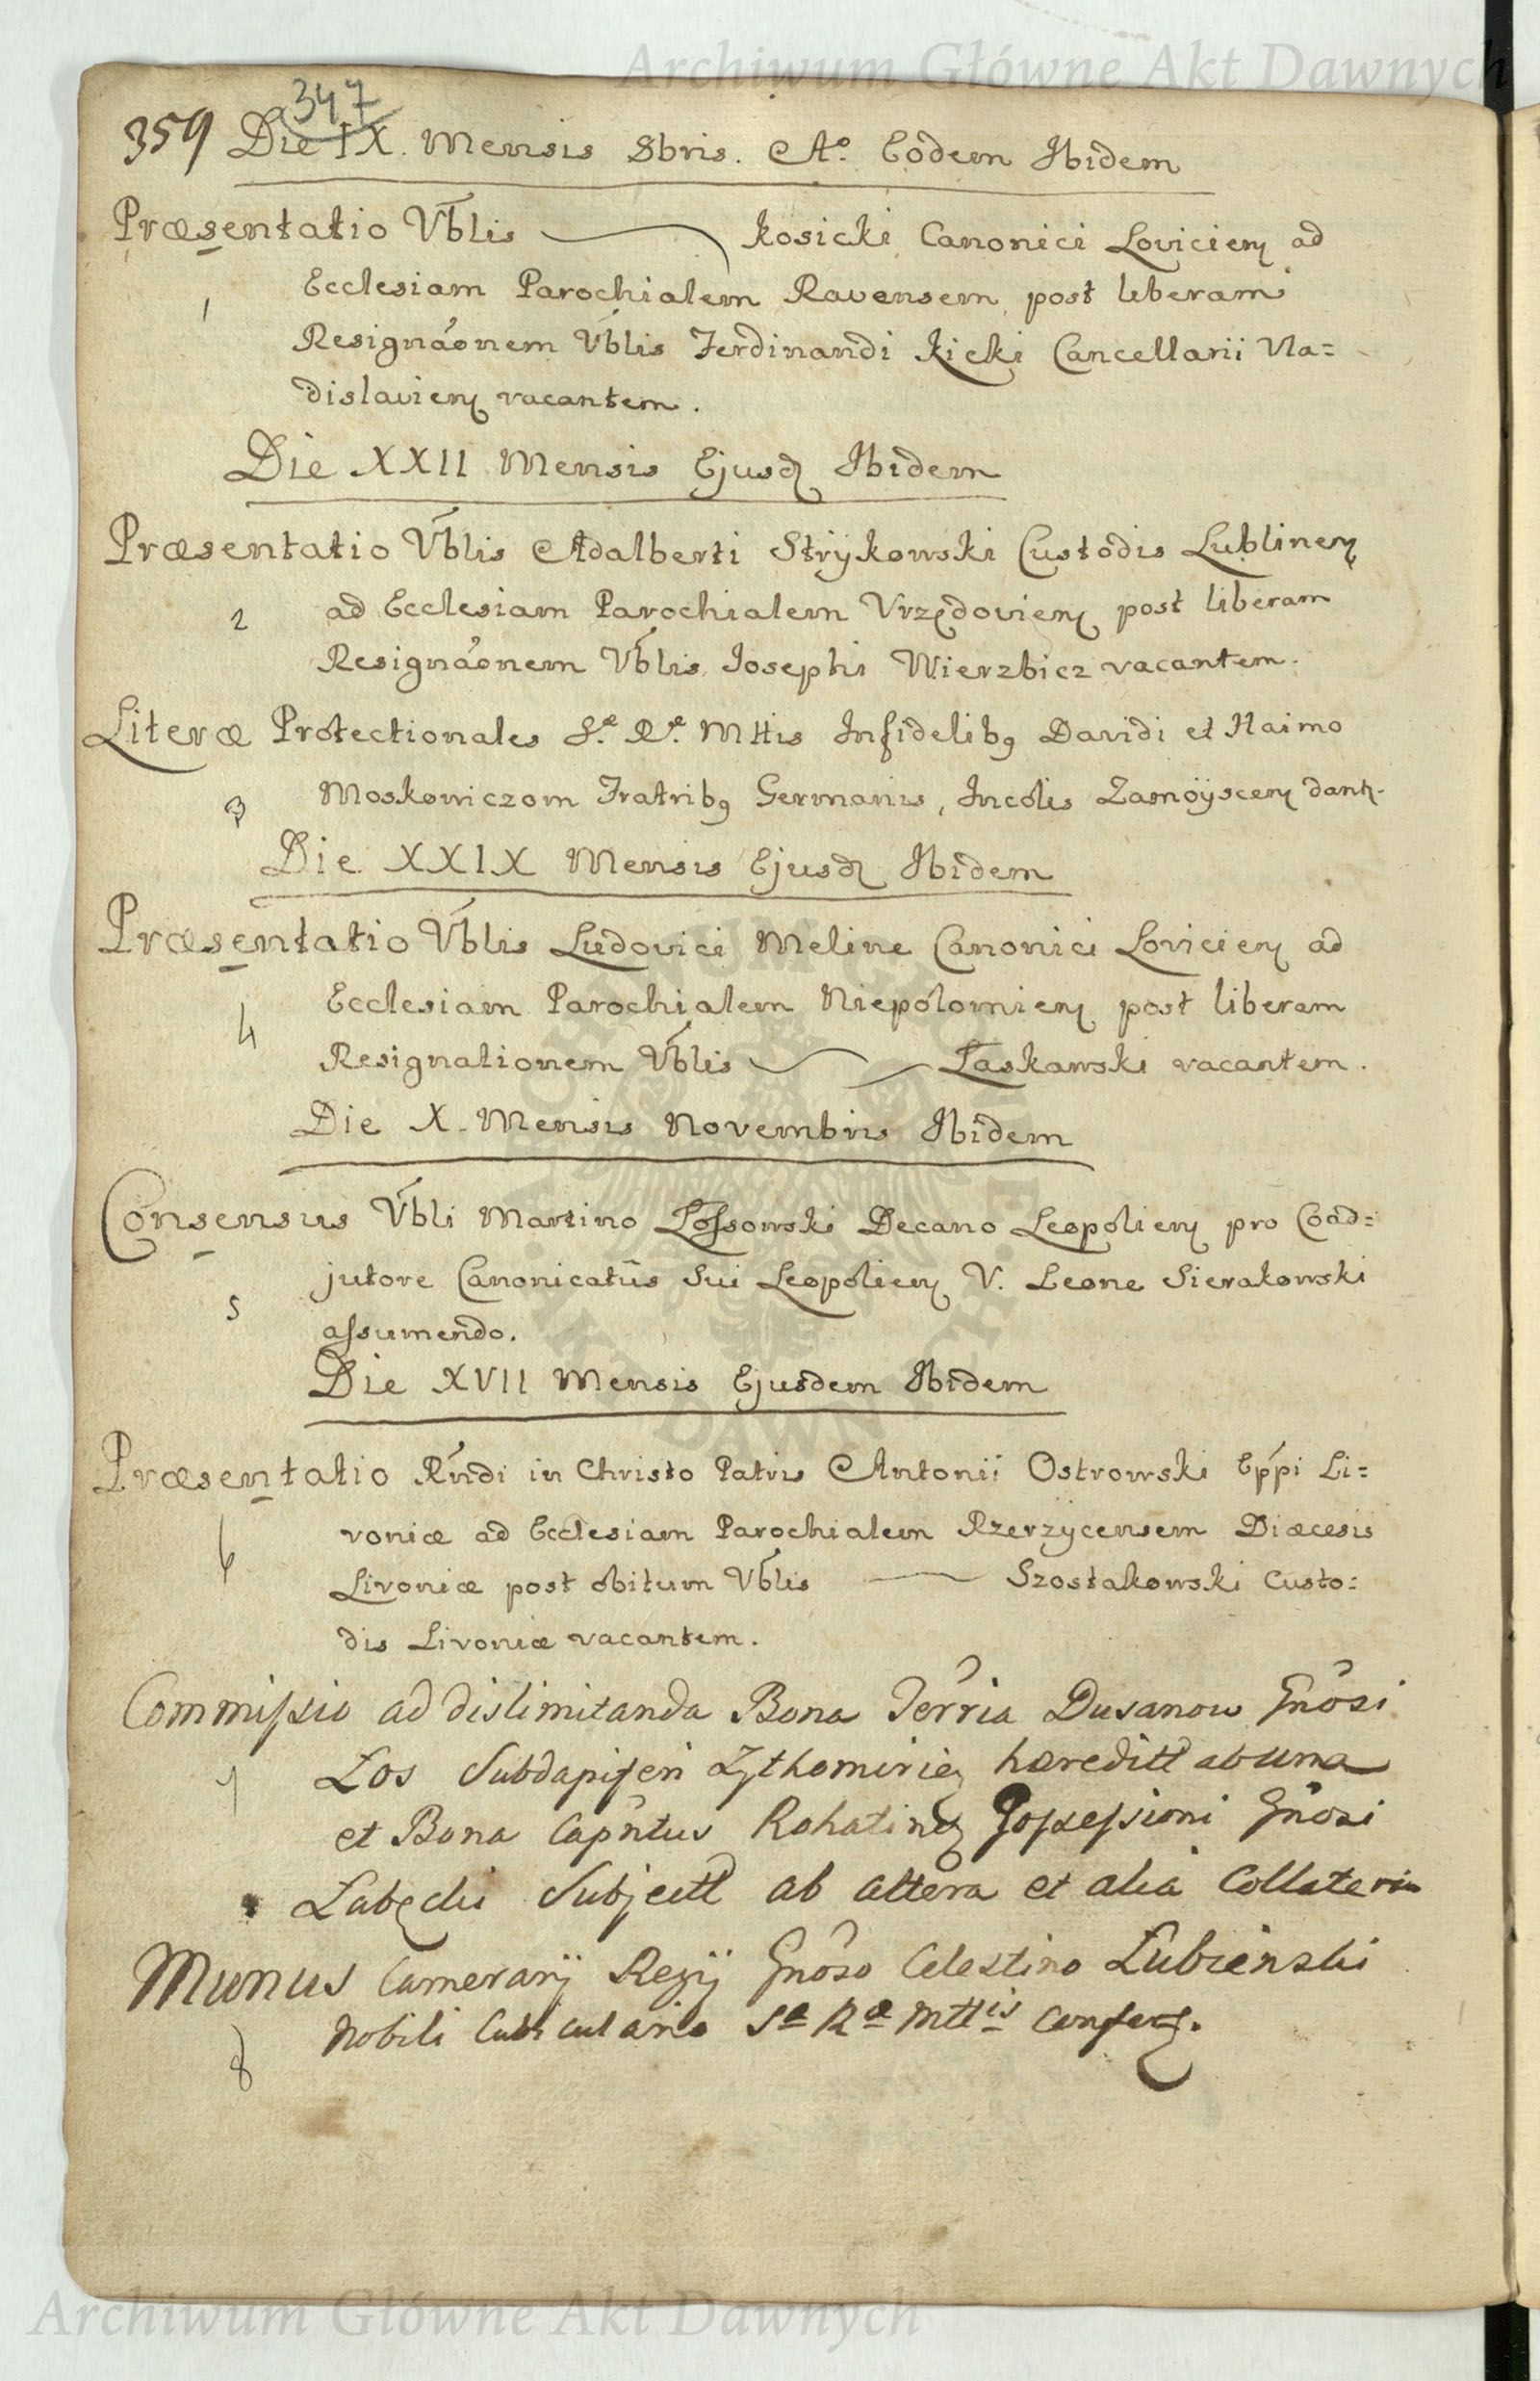 Archiwum Główne Akt Dawnych
347
359 Die IX. Mensis 8bris. Aº. Eodem Ibidem
Præsentatio Vblis Kosicki Canonici Lovicien ad
1 Ecclesiam Parochialem Ravensem, post liberam
Resignãonem Vblis Ferdinandi Kicki Cancellarii Vla=
dislavien vacantem.
Die XXII Mensis Ejusd Ibidem
Præsentatio Vblis Adalberti Strykowski Custodis Lublinen
2 ad Ecclesiam Parochialem Vrzędovien post liberam
Resignãonem Vblis Josephi Wierzbicz vacantem.
Literæ Protectionales S.æ R.æ Mttis Infidelibq Davidi et Haimo
3 Moskowiczom Fratribq Germanis, Incolis Zamoÿscen dant.
Die XXIX Mensis Ejusd Ibidem
Præsentatio Vblis Ludovici Meline Canonici Lovicien ad
4 Ecclesiam Parochialem Niepolomien post liberam
Resignationem Vblis Łaskawski vacantem.
Die X. Mensis Novembris Ibidem
Consensus Vbli Martino Łossowski Decano Leopolien pro Coad=
jutore Canonicatûs Sui Leopolien V. Leone Sierakowski
5 assumendo.
Die XVII Mensis Ejusdem Ibidem
Præsentatio Rndi in Christo Patris Antonii Ostrowski Eppi Li=
6 voniæ ad Ecclesiam Parochialem Rzerzÿcensem Diæcesis
Livoniæ post obitum Vblis Szostakowski Custo=
dis Livoniæ vacantem.
Commissio ad dislimitanda Bona Terria Dusanow Gnosi
7 Łos Subdapiferi Zythomirien hæreditt ab una
et Bona Capntus Rohatinen Possessioni Gnosi
Łabęcki Subjectt ab altera et alia Collateria
Munus Camerarij Regij Gnoso Celestino Łubienski
8 Nobili Cubiculario Sæ Ræ Mttis Confert.
ARCHIWUM GŁÓWNE AKT DAWNYCH
Archiwum Główne Akt Dawnych